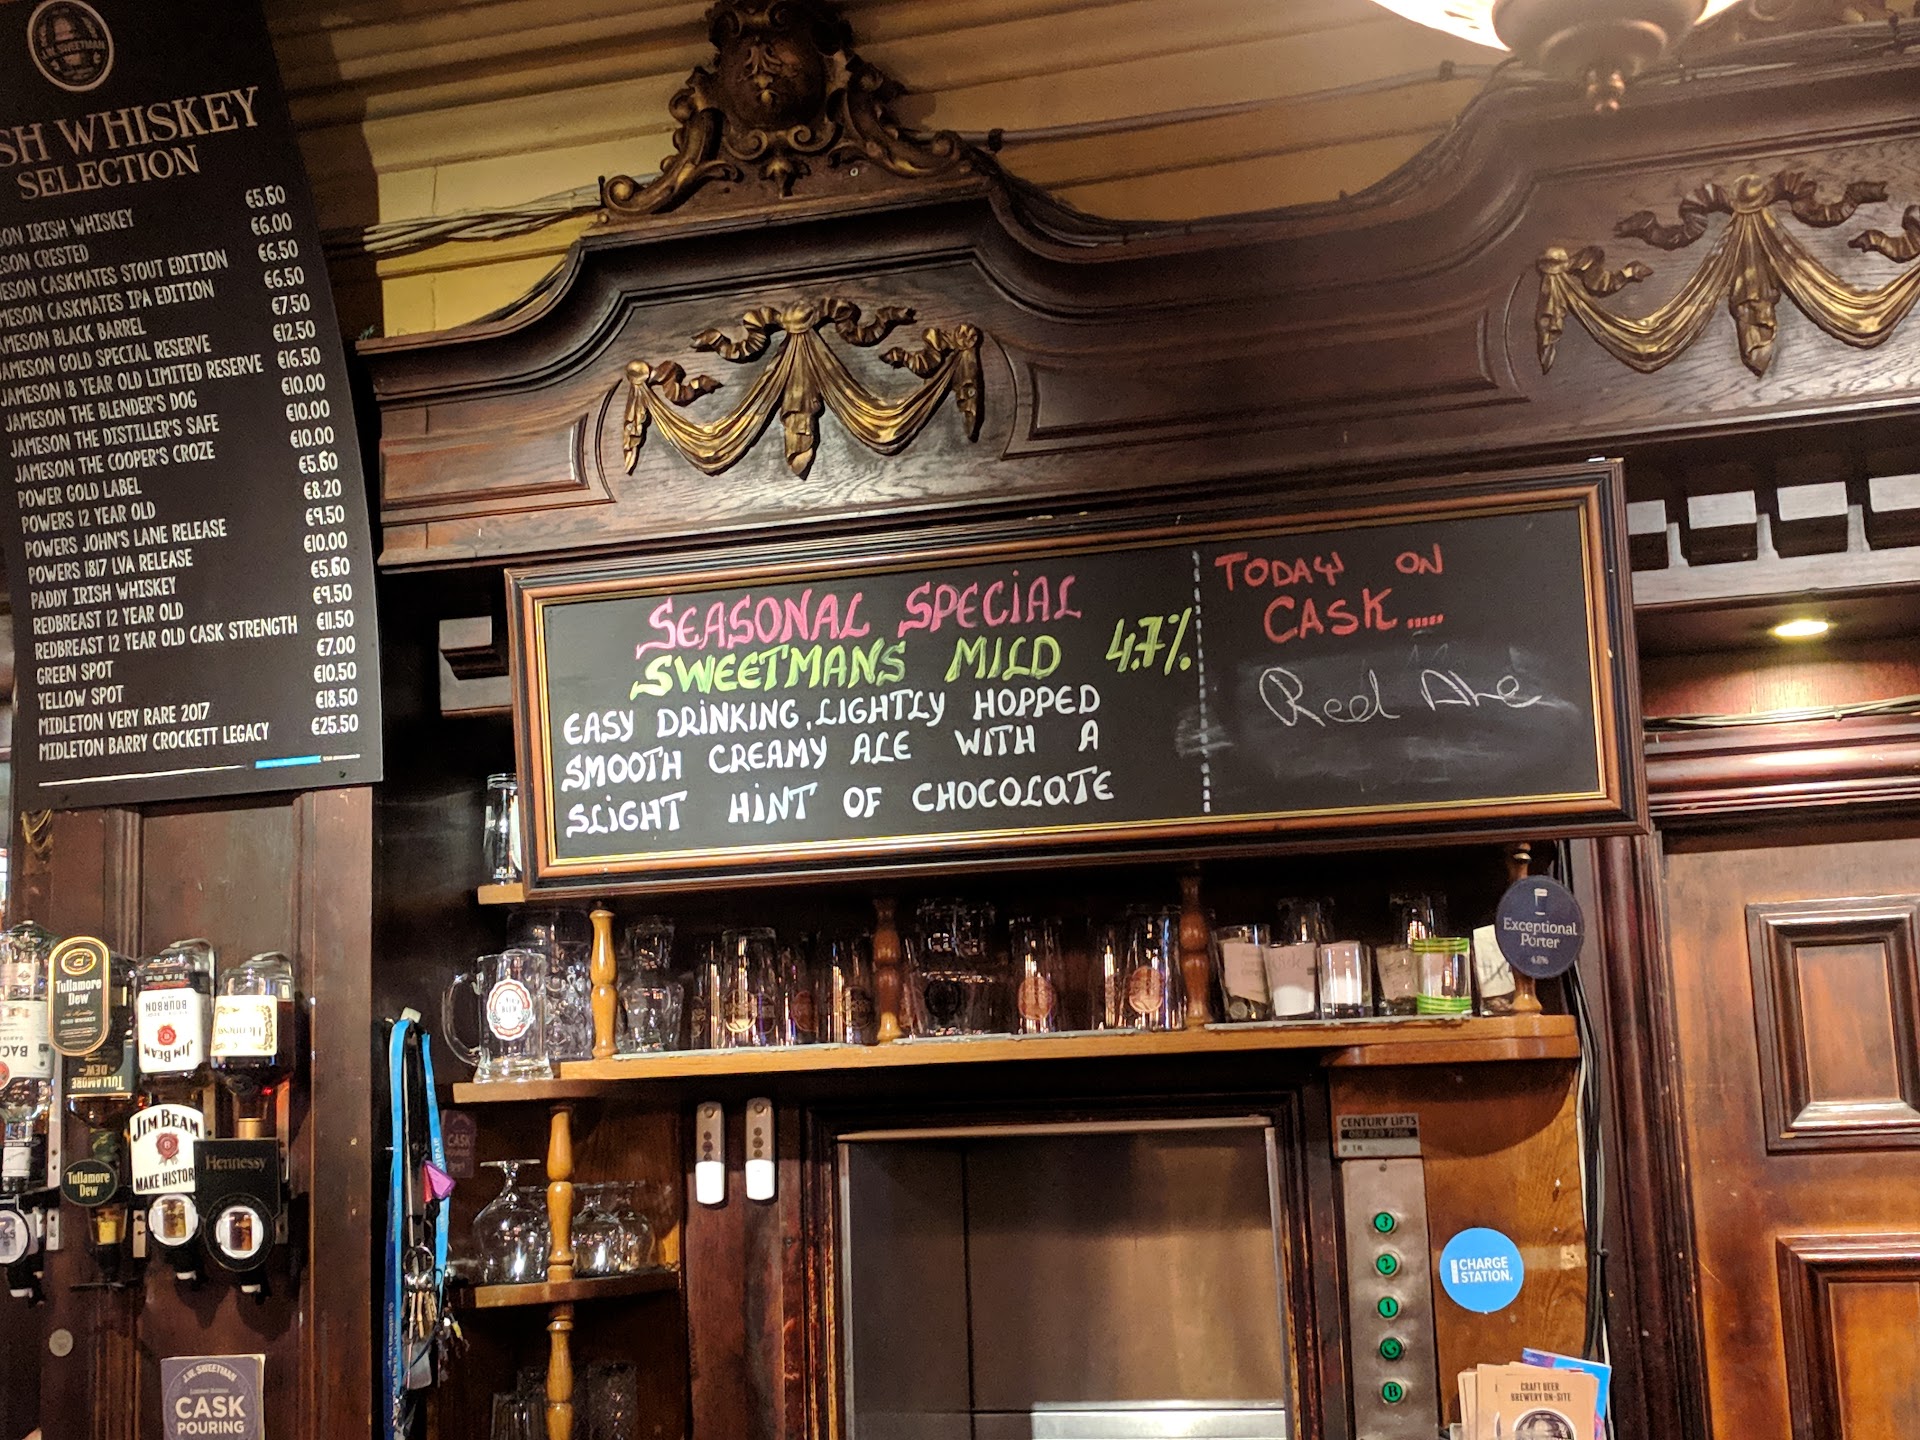 J.W. SWEETMAN
SH WHISKEY
SELECTION
SON IRISH WHISKEY €5.60
ESON CRESTED €6.00
MESON CASKMATES STOUT EDITION €6.50
MESON CASKMATES IPA EDITION €6.50
AMESON BLACK BARREL €7.50
JAMESON GOLD SPECIAL RESERVE €12.50
JAMESON 18 YEAR OLD LIMITED RESERVE €16.50
JAMESON THE BLENDER'S DOG €10.00
JAMESON THE DISTILLER'S SAFE €10.00
JAMESON THE COOPER'S CROZE €10.00
POWER GOLD LABEL €5.60
POWERS 12 YEAR OLD €8.20
POWERS JOHN'S LANE RELEASE €9.50
POWERS 1817 LVA RELEASE €10.00
PADDY IRISH WHISKEY €5.60
REDBREAST 12 YEAR OLD €9.50
REDBREAST 12 YEAR OLD CASK STRENGTH €11.50
GREEN SPOT €7.00
YELLOW SPOT €10.50
MIDLETON VERY RARE 2017 €18.50
MIDLETON BARRY CROCKETT LEGACY €25.50
SEASONAL SPECIAL
SWEETMANS MILD 4.7%
EASY DRINKING, LIGHTLY HOPPED
SMOOTH CREAMY ALE WITH A
SLIGHT HINT OF CHOCOLATE
TODAY ON
CASK.....
Red Ale
Exceptional
Porter
4.8%
Tullamore
Dew
BOURBON
JIM BEAM
BACA
DEW
TULLAMORE
JIM BEAM
MAKE HISTOR
Tullamore
Dew
Hennessy
CASK
CENTURY LIFTS
3
2
1
G
B
CHARGE
STATION.
J.W. SWEETMAN
CASK
POURING
CRAFT BEER
BREWERY ON-SITE